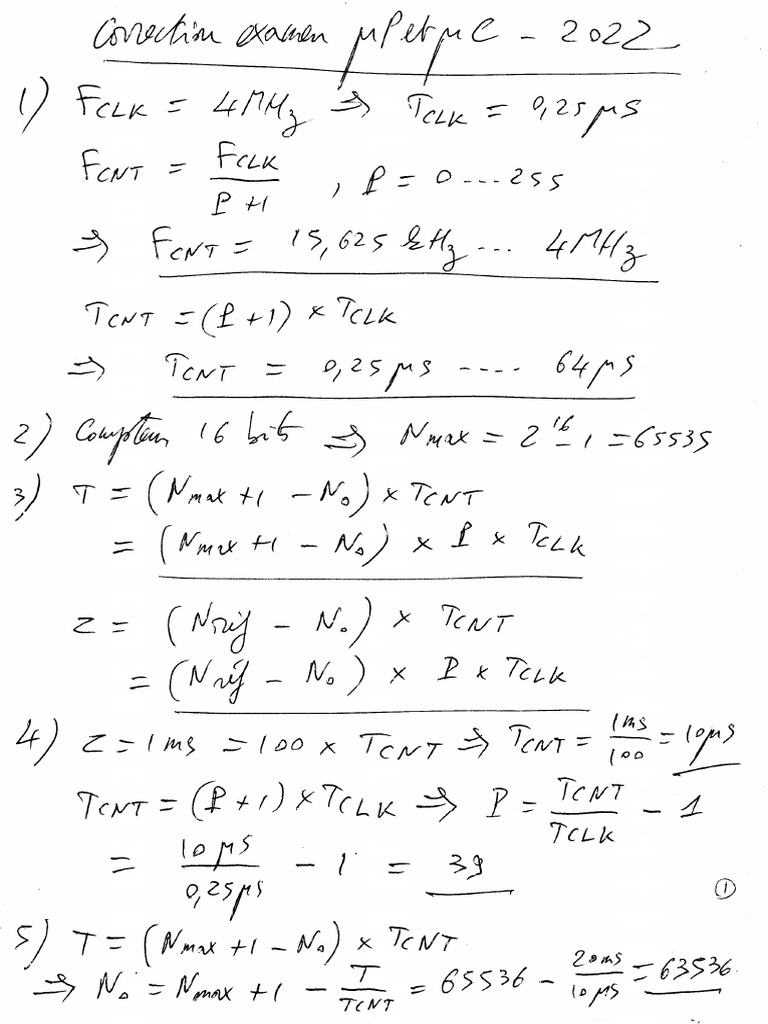 Correction examen μP et μC - 2022
1) FCLK = 4MHz ⇒ TCLK = 0,25 μs
FCNT = FCLK / P+1 , P = 0 ... 255
⇒ FCNT = 15,625 kHz ... 4MHz
TCNT = (P+1) × TCLK
⇒ TCNT = 0,25 μs .... 64 μs
2) Compteur 16 bits ⇒ Nmax = 2^16 - 1 = 65535
3) T = (Nmax +1 - N0) × TCNT
= (Nmax +1 - N0) × P × TCLK
Z = (Nréf - N0) × TCNT
= (Nréf - N0) × P × TCLK
4) Z = 1ms = 100 × TCNT ⇒ TCNT = 1ms / 100 = 10μs
TCNT = (P+1) × TCLK ⇒ P = TCNT / TCLK - 1
= 10 μs / 0,25μs - 1 = 39
①
5) T = (Nmax +1 - N0) × TCNT
⇒ N0 = Nmax +1 - T / TCNT = 65536 - 20ms / 10μs = 63536